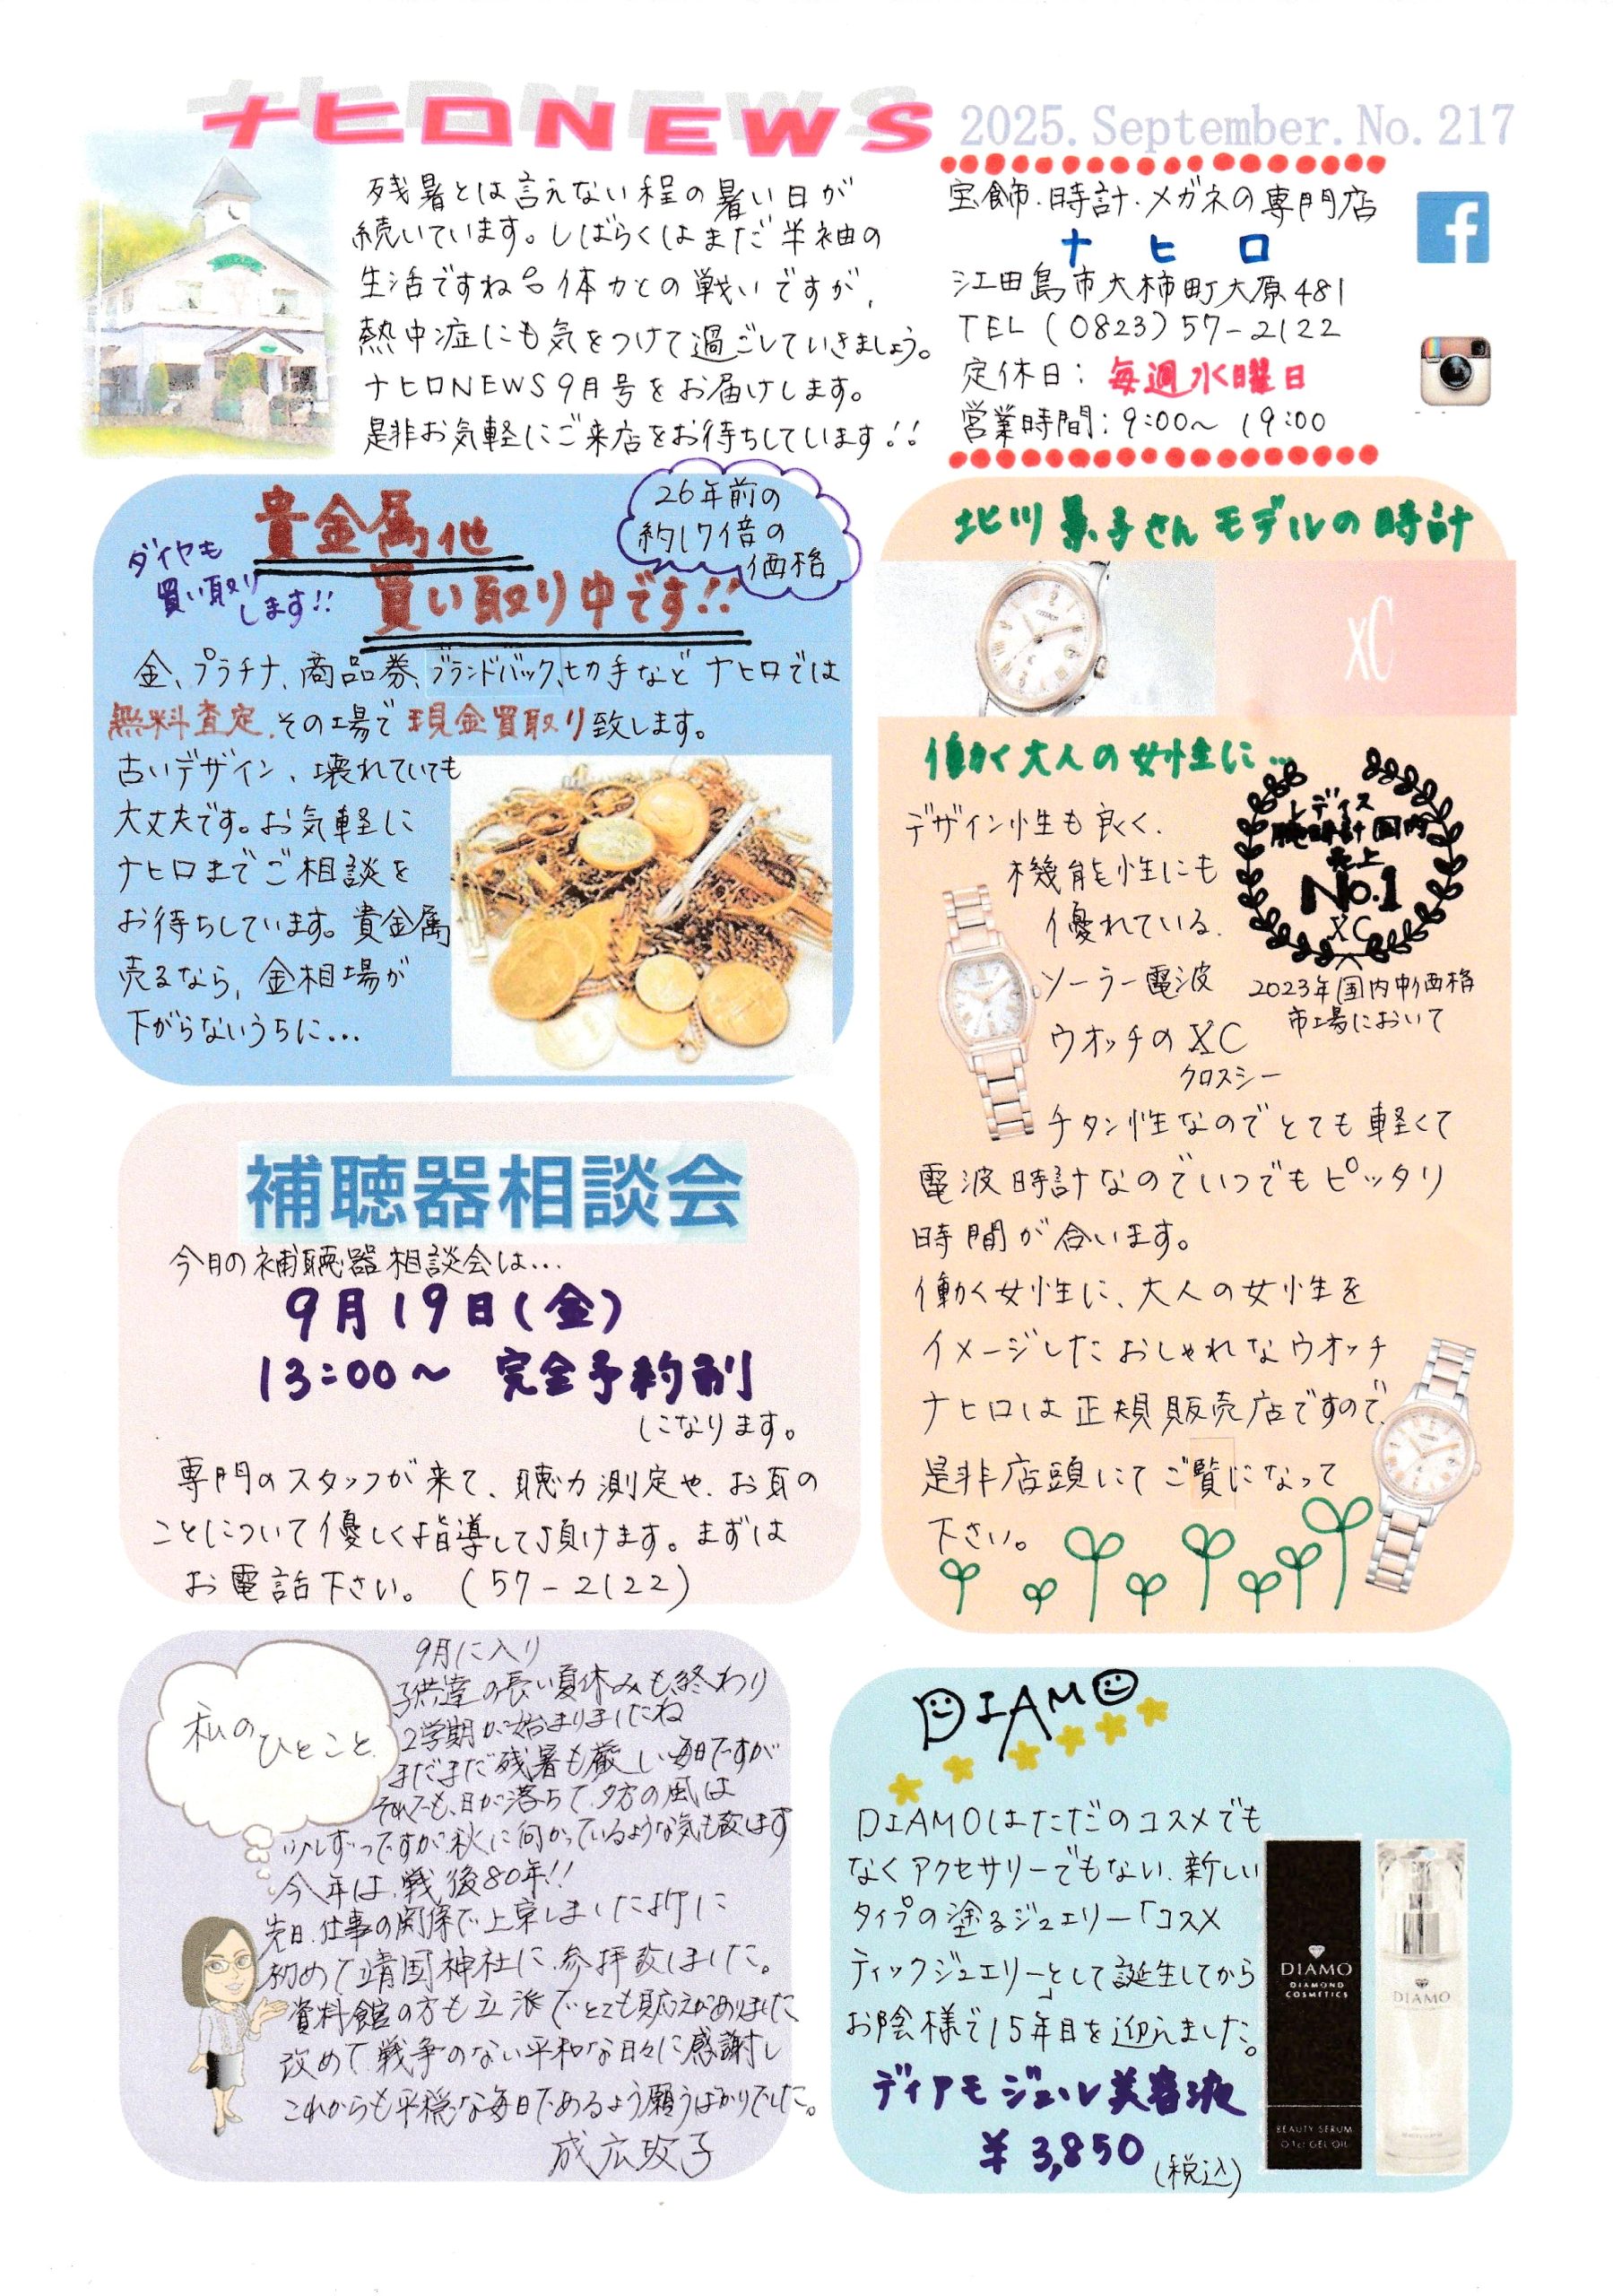 ナヒロNEWS
2025.September.No.217
残暑とは言えない程の暑い日が
続いています。しばらくはまだ半袖の
生活ですね。体力との戦いですが、
熱中症にも気をつけて過ごしていきましょう。
ナヒロNEWS9月号をお届けします。
是非お気軽にご来店をお待ちしています!!
宝飾・時計・メガネの専門店
ナヒロ
江田島市大柿町大原481
TEL(0823)57-2122
定休日:毎週水曜日
営業時間:9:00~19:00
貴金属他
買い取り中です!!
ダイヤも
買い取り
します!!
26年前の
約17倍の
価格
金、プラチナ、商品券、ブランドバック、切手などナヒロでは
無料査定、その場で現金買取り致します。
古いデザイン、壊れていても
大丈夫です。お気軽に
ナヒロまでご相談を
お待ちしています。貴金属
売るなら、金相場が
下がらないうちに...
北川景子さんモデルの時計
CITIZEN
xC
働く大人の女性に...
レディス
腕時計国内
売上
No.1
XC
2023年国内中価格
市場において
デザイン性も良く、
機能性にも
優れている、
ソーラー電波
ウオッチのXC
クロスシー
チタン性なのでとても軽くて
電波時計なのでいつでもピッタリ
時間が合います。
働く女性に、大人の女性を
イメージしたおしゃれなウオッチ
ナヒロは正規販売店ですので、
是非店頭にてご覧になって
下さい。
補聴器相談会
今月の補聴器相談会は...
9月19日(金)
13:00~ 完全予約制
になります。
専門のスタッフが来て、聴力測定や、お耳の
ことについて優しく指導して頂けます。まずは
お電話下さい。(57-2122)
私のひとこと
9月に入り
子供達の長い夏休みも終わり
2学期が始まりましたね
まだまだ残暑も厳しい毎日ですが
それでも、日が落ちて、夕方の風は
少しずつですが秋に向かっているような気も致します
今年は、戦後80年!!
先日、仕事の関係で上京しました折に
初めて靖国神社に、参拝致しました。
資料館の方も立派でとても見応えがありました
改めて、戦争のない平和な日々に感謝し
これからも平穏な毎日であるよう願うばかりでした。
成広玫子
DIAMO
DIAMOはただのコスメでも
なくアクセサリーでもない、新しい
タイプの塗るジュエリー「コスメ
ティックジュエリー」として誕生してから
お陰様で15年目を迎えました。
ディアモジェル美容液
¥3,850(税込)
DIAMO
DIAMOND
COSMETICS
BEAUTY SERUM
0.1ct GEL OIL
DIAMO